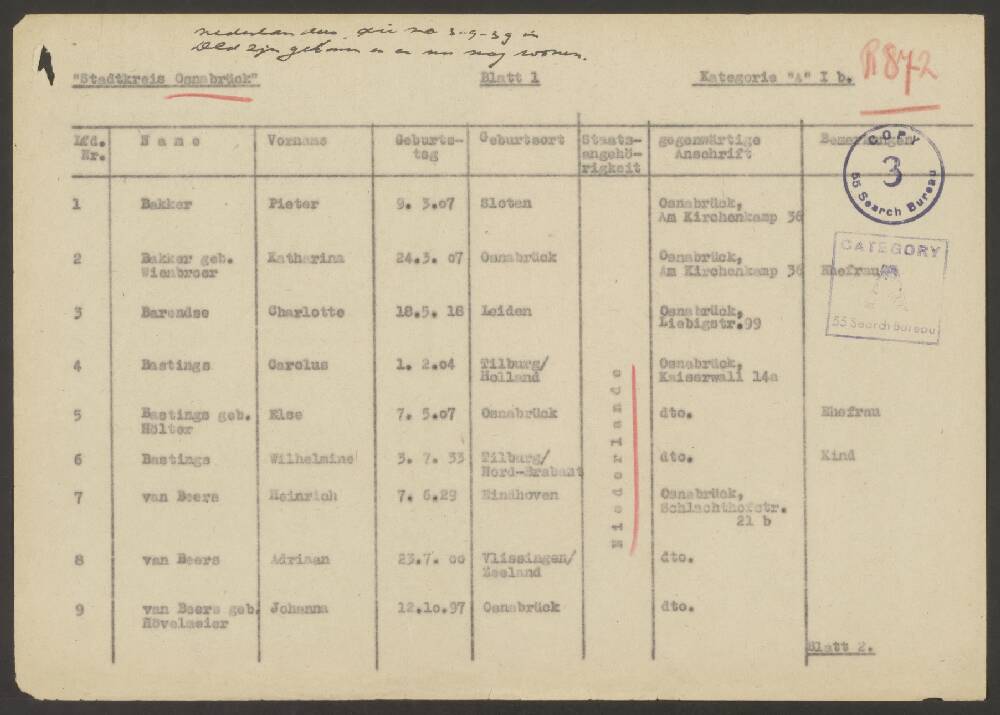 nederlanders die na 3-9-39 in
Dld zijn gekomen en er nu nog wonen.
"Stadtkreis Osnabrück" Blatt 1 Kategorie "A" I b. R872
Lfd. Nr. Name Vorname Geburts-tag Geburtsort Staats-angehö-rigkeit gegenwärtige Anschrift Bemerkungen
COPY
3
55 Search Bureau
1 Bakker Pieter 9. 3.07 Sloten Osnabrück,
Am Kirchenkamp 36
2 Bakker geb. Katharina 24.3. 07 Osnabrück Osnabrück,
Wienbroer Am Kirchenkamp 36 Ehefrau
CATEGORY
A
55 Search Bureau
3 Barendse Charlotte 18.5. 18 Leiden Osnabrück,
Liebigstr.99
4 Bastings Carolus 1. 2.04 Tilburg/ Osnabrück,
Holland Kaiserwall 14a
5 Bastings geb. Else 7. 5.07 Osnabrück dto. Ehefrau
Hölter
6 Bastings Wilhelmine 3. 7. 33 Tilburg/ dto. Kind
Nord-Brabant
7 van Beers Heinrich 7. 6.29 Eindhoven Osnabrück,
Schlachthofstr.
21 b
8 van Beers Adriaan 23.7. 00 Vlissingen/ dto.
Zeeland
9 van Beers geb. Johanna 12.10.97 Osnabrück dto.
Hövelmeier
Niederlande
Blatt 2.